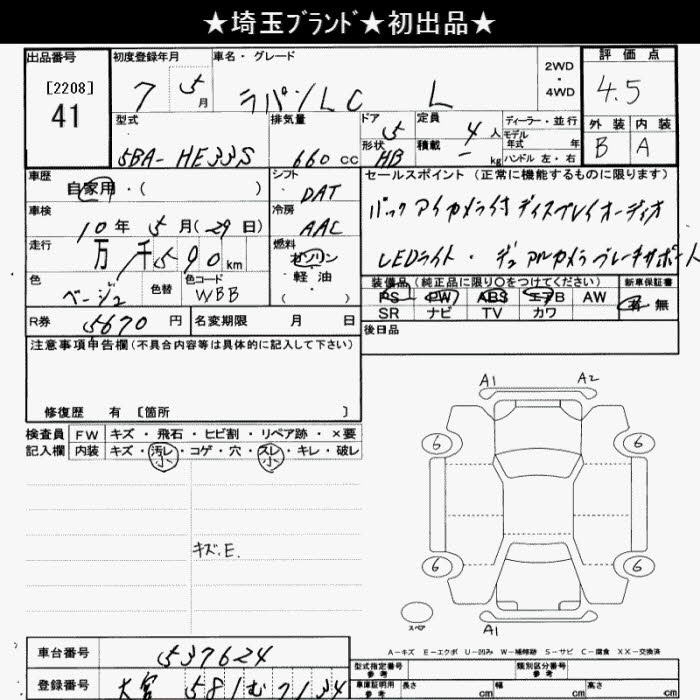 ★埼玉ﾌﾞﾗﾝﾄﾞ★初出品★
出品番号 [2208] 41
初度登録年月 7 5月
車名・グレード ラパンLC L
2WD・4WD
評価点 4.5
外装 B 内装 A
型式 5BA-HE33S
排気量 660cc
ドア 5 定員 4人
形状 HB 積載 - kg
ディーラー・並行
モデル年式 年
ハンドル 左・右
車歴 自家用・( )
シフト DAT
セールスポイント (正常に機能するものに限ります)
バックアイカメラ付ディスプレイオーディオ
LEDライト・デュアルカメラブレーキサポート
車検 10年 5月(29日)
冷房 AAC
走行 万 千590km
燃料 ガソリン 軽・油 ( )
色 ベージュ 色替 色コード WBB
装備品 (純正品に限り○をつけてください) 新車保証書
PS PW ABS エアB AW 有 無
SR ナビ TV カワ
R券 5670円 名変期限 月 日
後日品
注意事項申告欄(不具合内容等は具体的に記入して下さい)
修復歴 有 [箇所 ]
検査員記入欄
FW キズ・飛石・ヒビ割・リペア跡・×要
内装 キズ・汚レ・コゲ・穴・スレ・キレ・破レ
小 小
キズ.E.
A1 A2
6 6
6 6
スペア A1
A-キズ E-エクボ U-凹み W-補修跡 S-サビ C-腐食 XX-交換済
車台番号 537624
登録番号 大宮 581む7134
型式指定番号 参考 類別区分番号 参考
車庫証明用 参考 長さ cm 幅 cm 高さ cm